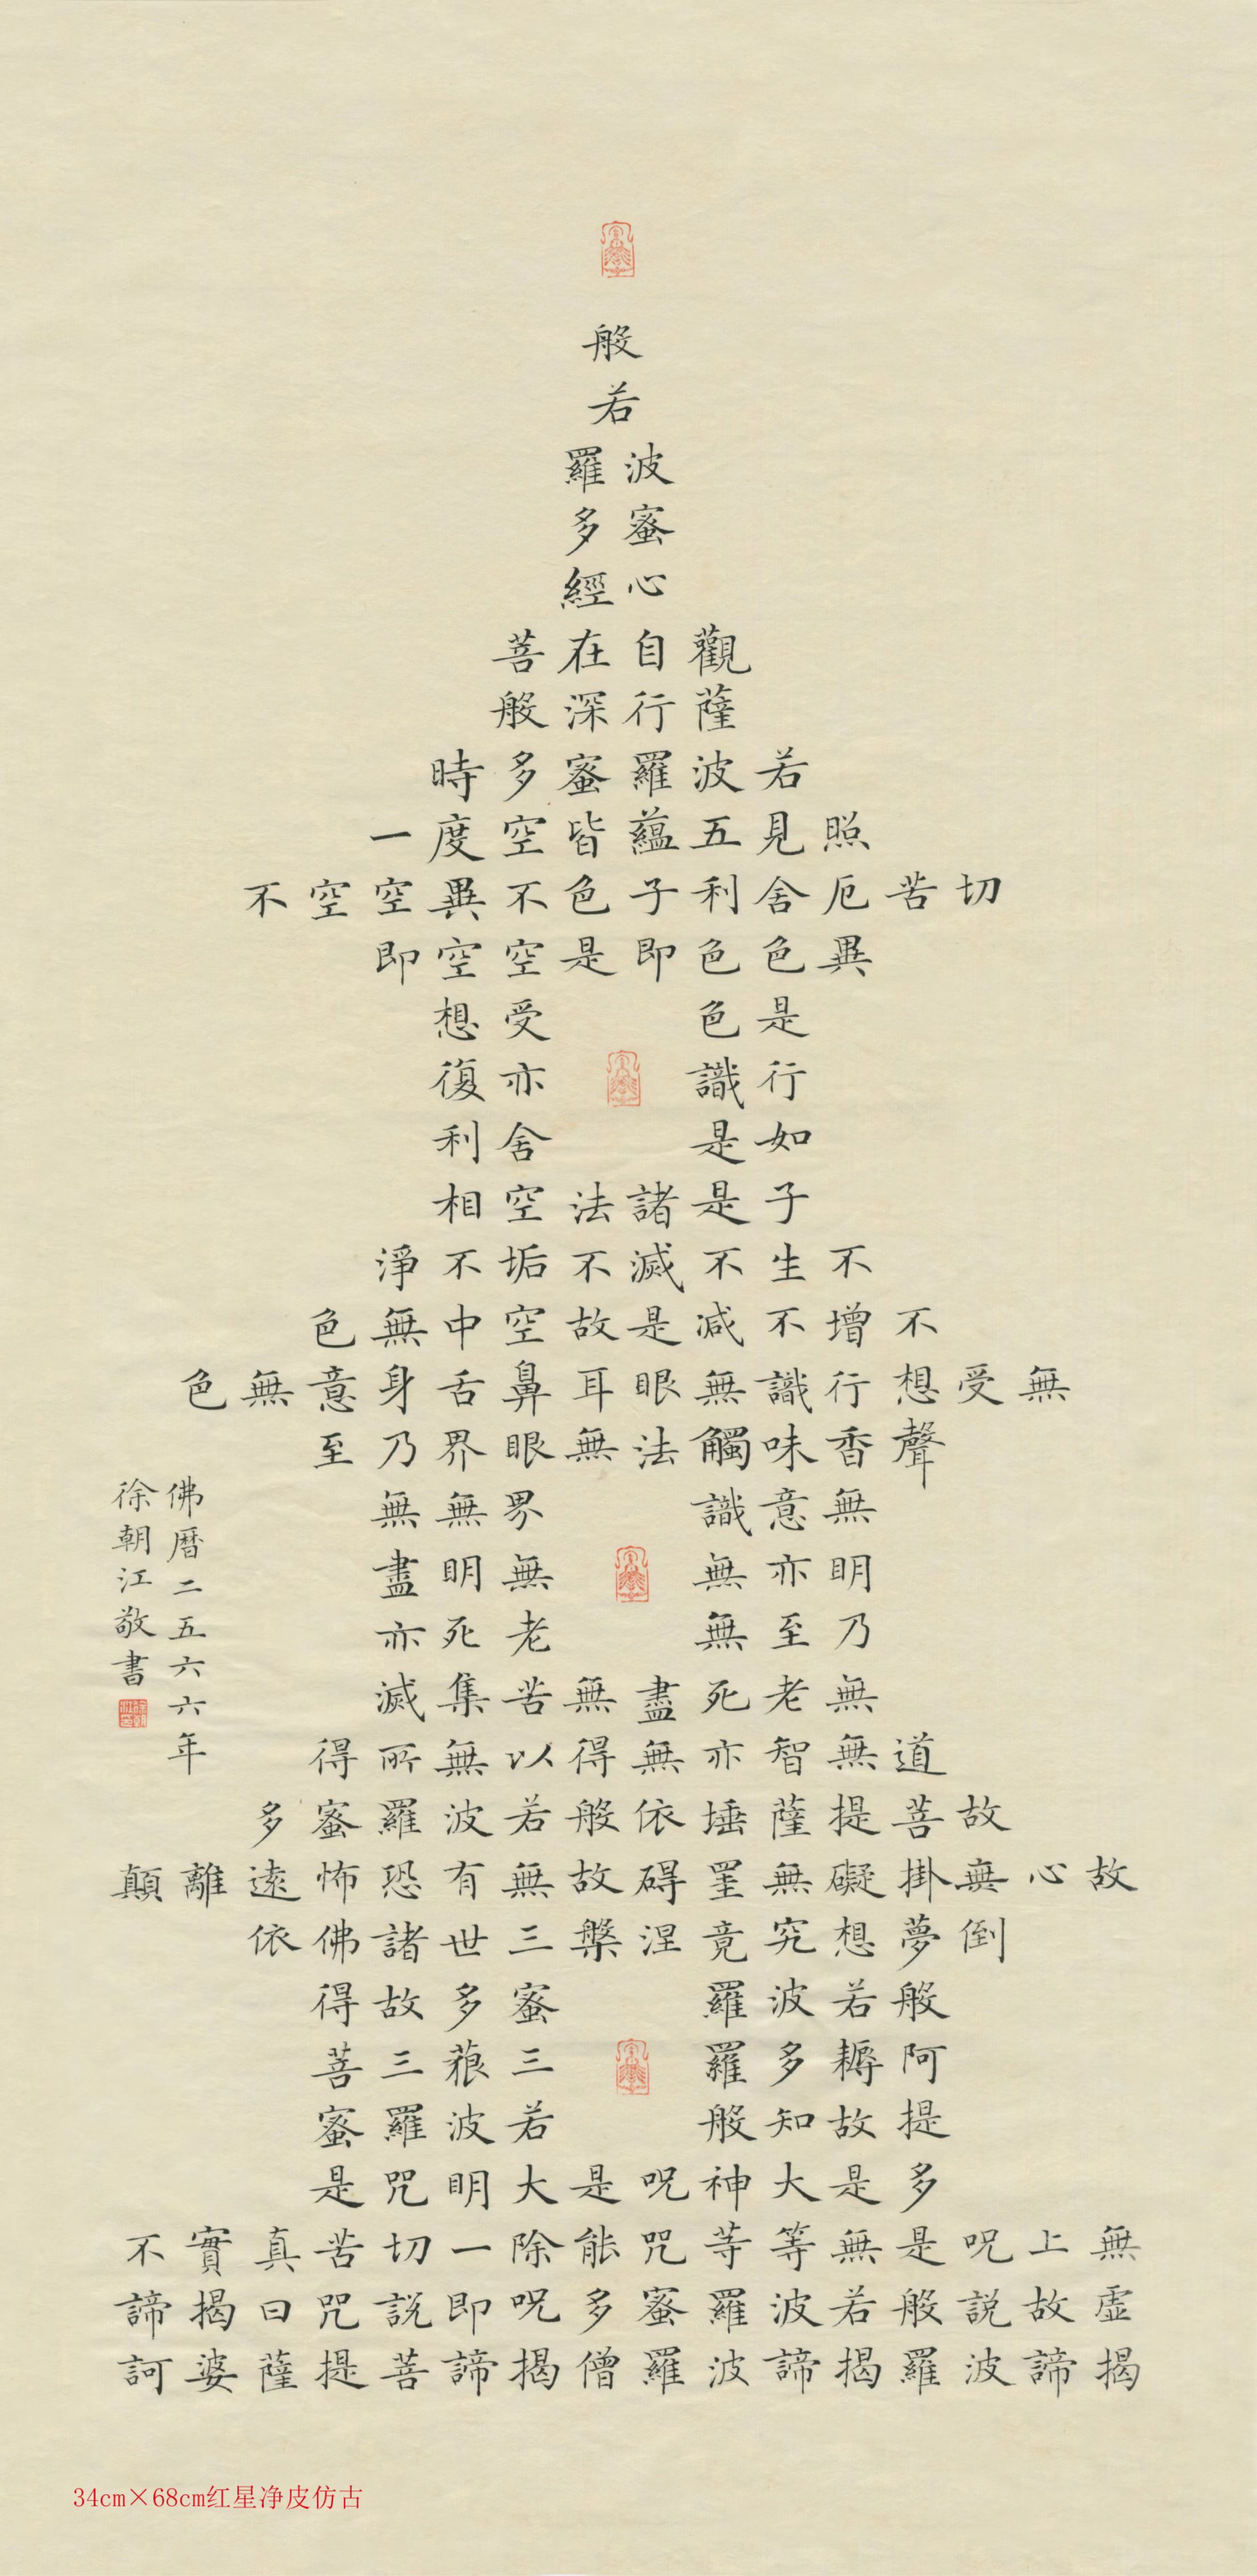 般
若
波羅
蜜多
心經
觀自在菩
薩行深般
若波羅蜜多時
照見五蘊皆空度一
切苦厄舍利子色不異空空不
異色色即是空空即
是色受想
行識亦復
如是舍利
子是諸法空相
不生不滅不垢不淨
不增不減是故空中無色
無受想行識無眼耳鼻舌身意無色
聲香味觸法無眼界乃至
無意識界無無
明亦無無明盡
乃至無老死亦
無老死盡無苦集滅
道無智亦無得以無所得
故菩提薩埵依般若波羅蜜多
故心無掛礙無罣碍故無有恐怖遠離顛
倒夢想究竟涅槃三世諸佛依
般若波羅蜜多故得
阿耨多羅三藐三菩
提故知般若波羅蜜
多是大神呪是大明咒是
無上呪是無等等咒能除一切苦真實不
虛故説般若波羅蜜多呪即説咒曰揭諦
揭諦波羅揭諦波羅僧揭諦菩提薩婆訶
佛曆二五六六年
徐朝江敬書
34cm×68cm红星净皮仿古